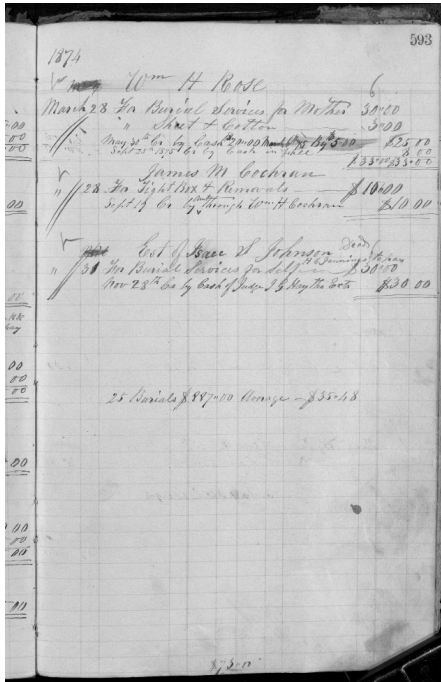 593
1874
Wm H Rose 6
March 28 For Burial Services for Mother 30.00
" " Sheet & Cotton 5.00
May 30th Cr by Cash $20.00 $5.00 $25.00
Sept 20 1875 Cr by Cash in full 10.00
$35.00 $35.00
James M Cochran
" 28 For Tight Box & Removals $10.00
Sept 19 Cr through Wm H Cochran $10.00
Est of Isaac S Johnson Dead
" 31 For Burial Services for Self $30.00
Nov 28th Cr by Cash of Judge J G Exts $30.00
25 Burials $887.00 Average - $35.48